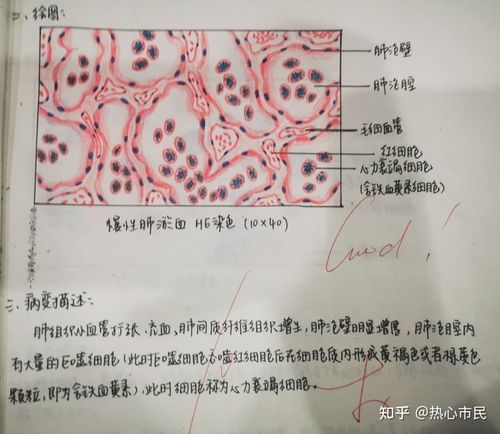 二、绘图:
肺泡壁
肺泡腔
毛细血管
红细胞
心力衰竭细胞
(含铁血黄素细胞)
慢性肺淤血 HE染色 (10×40)
Good!
三、病变描述:
肺组织小血管扩张、充血、肺间质纤维组织增生,肺泡壁明显增厚,肺泡腔内
有大量的巨噬细胞(此时巨噬细胞吞噬红细胞后在细胞质内形成黄褐色或者棕黄色
颗粒,即为含铁血黄素),此时细胞称为心力衰竭细胞。
知乎 @热心市民